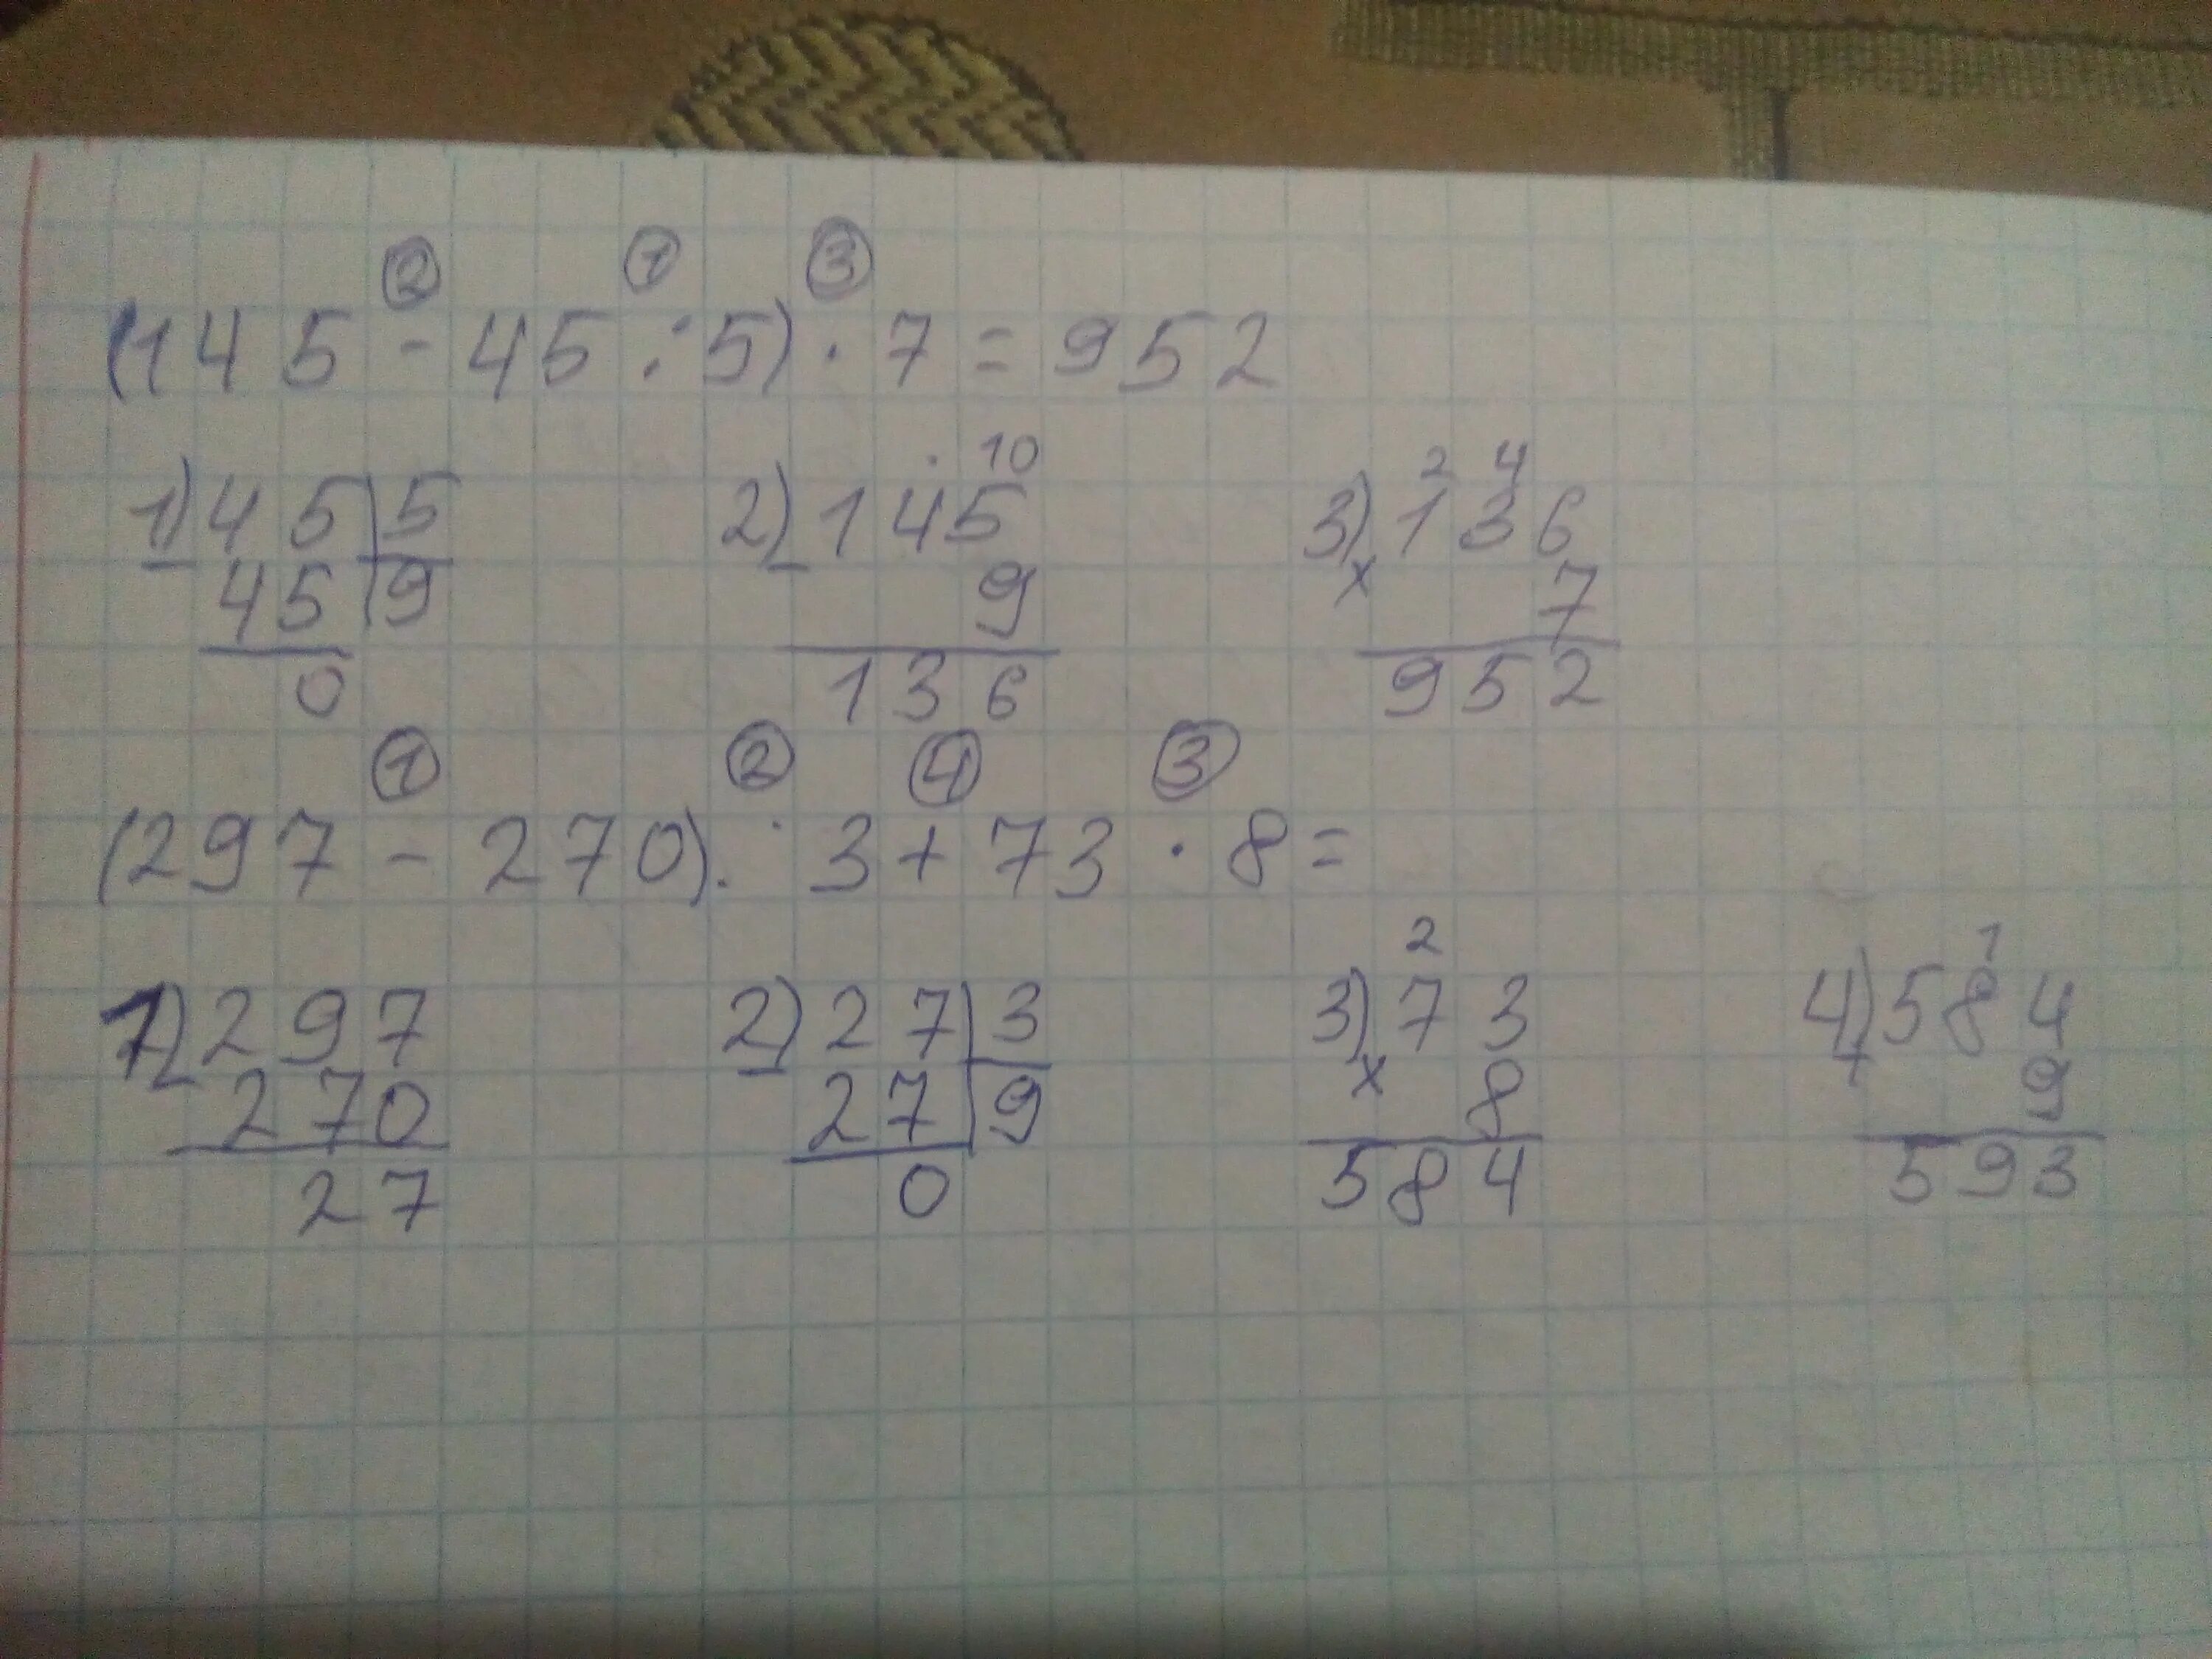 ② ① ③
(145 - 45 : 5) · 7 = 952
· 10 2 4
1) 45 | 5 2) 145 3) 136
- 45 | 9 - 9 × 7
0 136 952
① ② ④ ③
(297 - 270) : 3 + 73 · 8 =
2 1
1) 297 2) 27 | 3 3) 73 4) 584
- 270 - 27 | 9 × 8 + 9
27 0 584 593